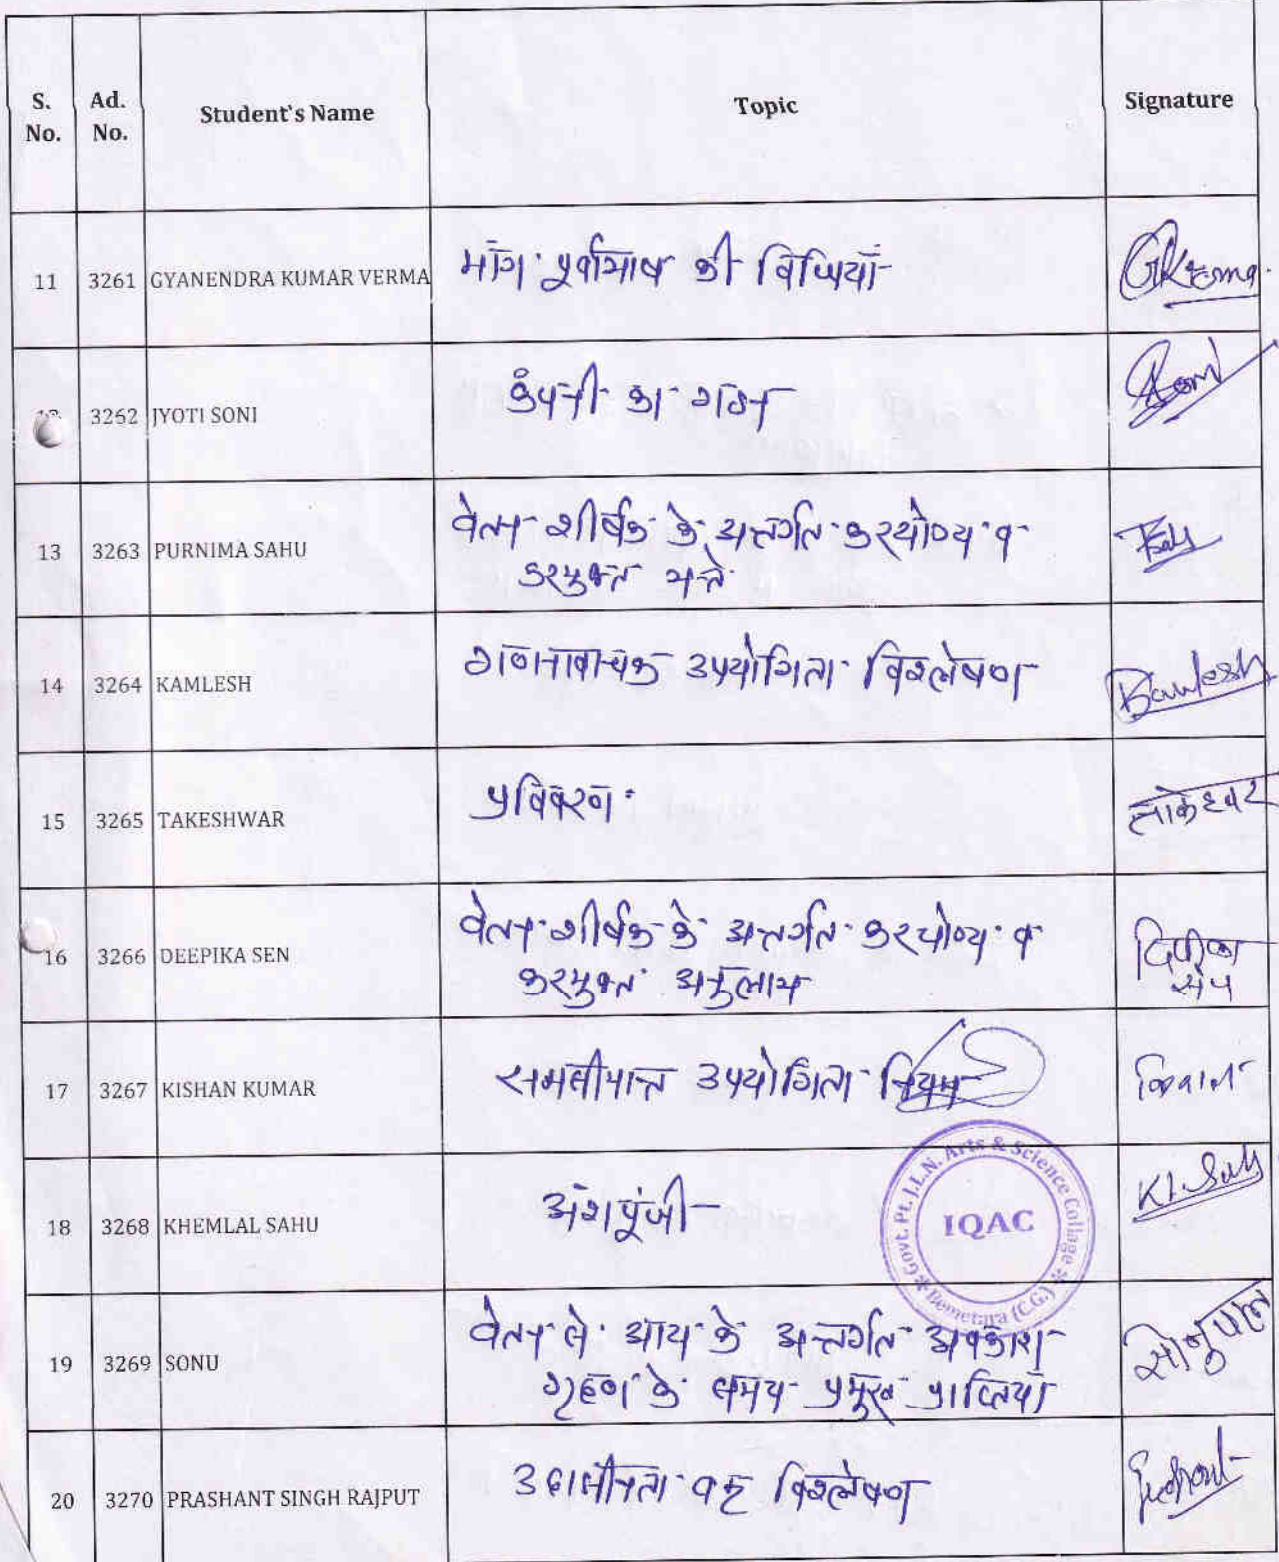 S. No. Ad. No. Student's Name Topic Signature
11 3261 GYANENDRA KUMAR VERMA माँग पूर्वाभाष की विधियाँ
3262 JYOTI SONI कंपनी का गठन Soni
13 3263 PURNIMA SAHU वेतन शीर्षक के अन्तर्गत करयोग्य व
करमुक्त भत्ते
14 3264 KAMLESH गणनावाचक उपयोगिता विश्लेषण Kamlesh
15 3265 TAKESHWAR प्रविवरण ताकेश्वर
16 3266 DEEPIKA SEN वेतन शीर्षक के अन्तर्गत करयोग्य व
करमुक्त अनुलाभ दिपीका सेन
17 3267 KISHAN KUMAR समसीमान्त उपयोगिता नियम किशन
18 3268 KHEMLAL SAHU अंशपूंजी Kl Sahu
Govt. Pt. J.L.N. Arts & Science College
IQAC
Bemetara (C.G.)
19 3269 SONU वेतन से आय के अन्तर्गत अवकाश
गृहण के समय प्रमुख प्राप्तियाँ सोनू पाल
20 3270 PRASHANT SINGH RAJPUT उदासीनता वक्र विश्लेषण